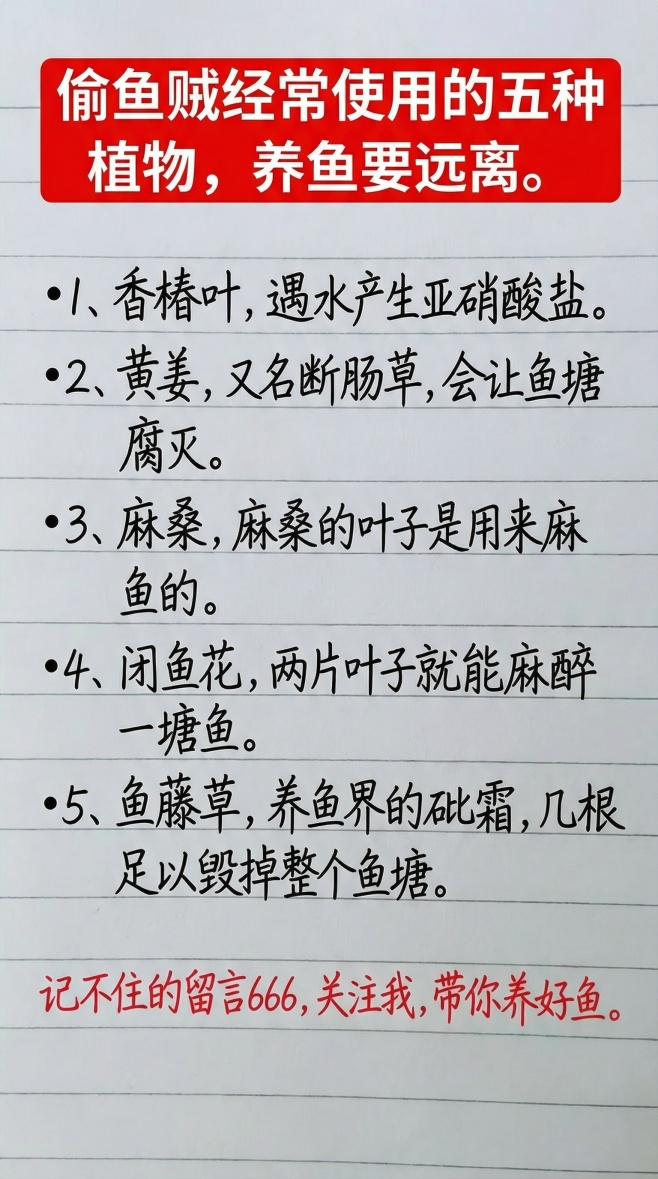 偷鱼贼经常使用的五种
植物，养鱼要远离。
•1、香椿叶，遇水产生亚硝酸盐。
•2、黄姜，又名断肠草，会让鱼塘
腐灭。
•3、麻桑，麻桑的叶子是用来麻
鱼的。
•4、闭鱼花，两片叶子就能麻醉
一塘鱼。
•5、鱼藤草，养鱼界的砒霜，几根
足以毁掉整个鱼塘。
记不住的留言666，关注我，带你养好鱼。